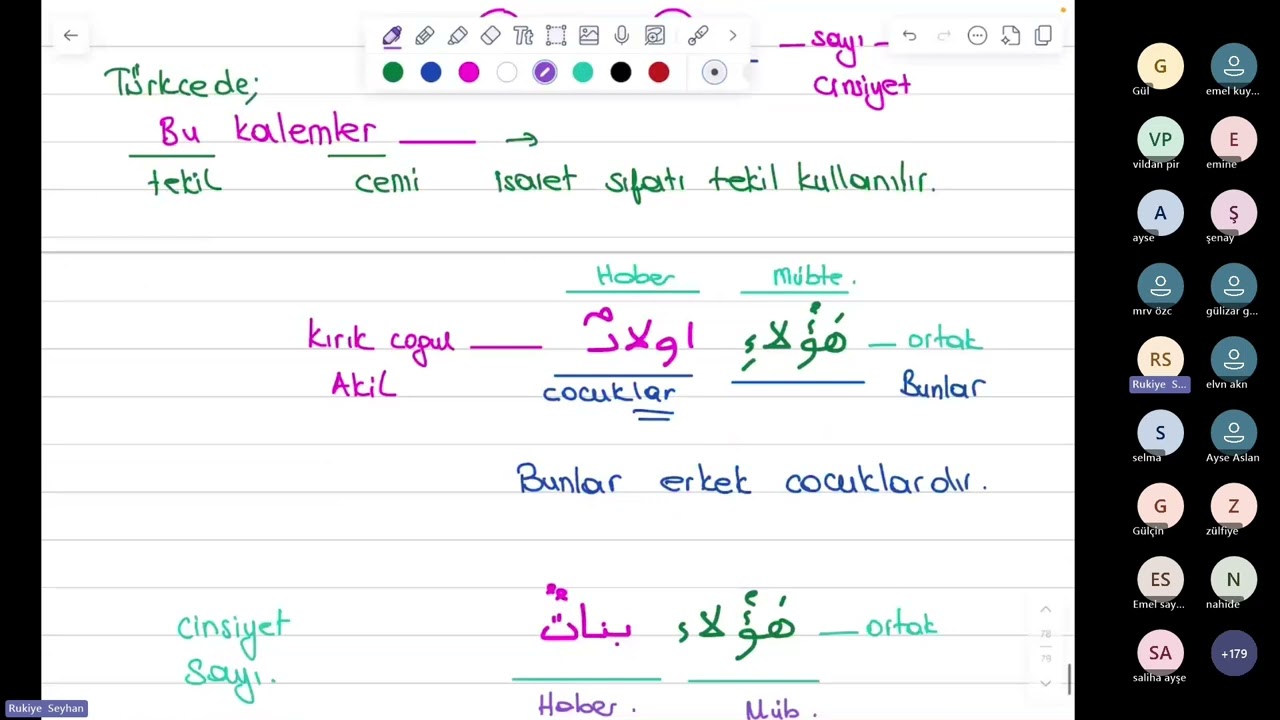 — sayı —
cinsiyet
Türkcede;
Bu kalemler ——— →
tekil cemi isaret sıfatı tekil kullanılır.
Haber Mübte.
Kırık cogul ——— اولادٌ هَؤُلاَءِ — ortak
Akil cocuklar Bunlar
Bunlar erkek cocuklardır.
cinsiyet بناتٌ هَؤُلاء — ortak
sayı.
Haber. Müb.
78
79
Tt
G
Gül
emel kuy...
VP
vildan pir
E
emine
A
ayse
Ş
şenay
mrv özc
gülizar g...
RS
Rukiye S...
elvn akn
S
selma
Ayse Aslan
G
Gülçin
Z
zülfiye
ES
Emel say...
N
nahide
SA
saliha ayşe
+179
Rukiye Seyhan